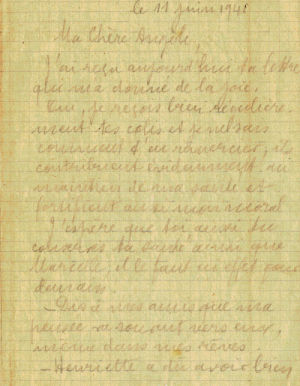 le 11 juin 1941
Ma Chère Angèle
J'ai reçu aujourd'hui ta lettre
qui m'a donné de la joie.
Oui, je reçois bien régulière-
ment tes colis et je ne sais
comment t'en remercier; ils
contribuent évidemment au
maintien de ma santé et
fortifient aussi mon
J'espère que toi aussi tu
conserves ta santé ainsi que
Marcelle, il le faut en effet pour
demain.
- Dis à mes amis que ma
pensée va souvent vers eux,
même dans mes rêves.
- Henriette a dû avoir bien